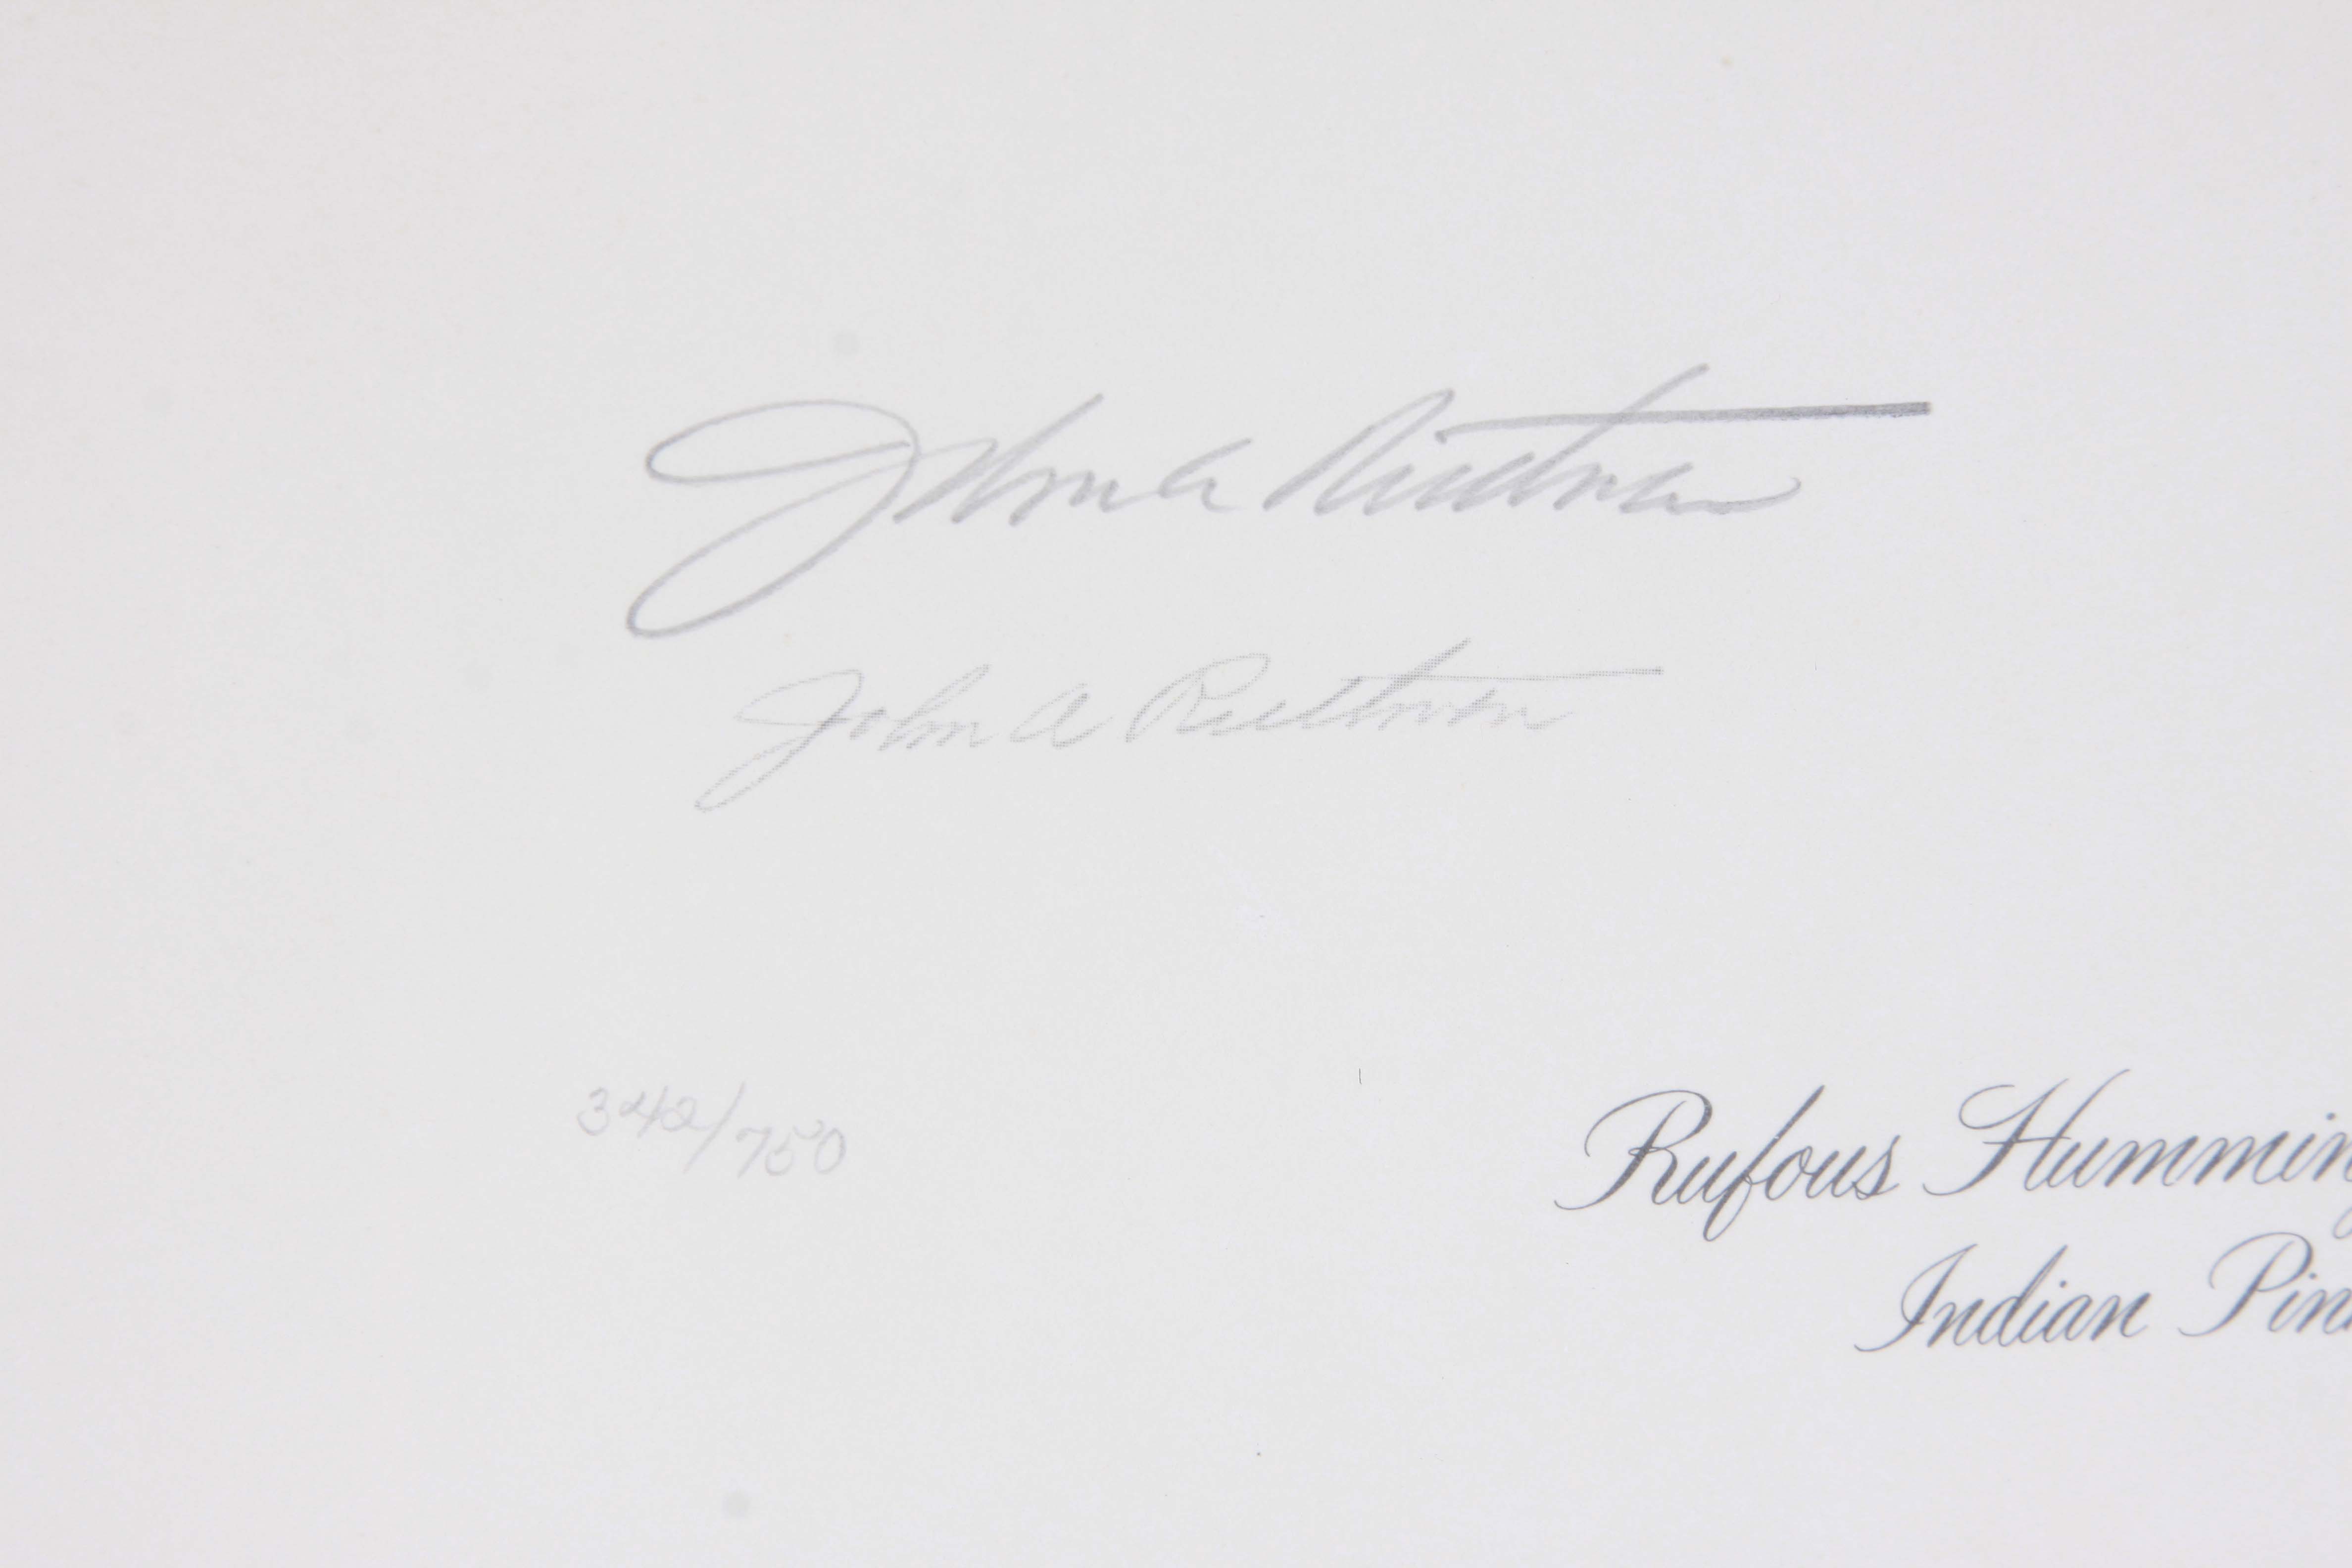 John A Ruthven
John A Ruthven
342/750
Rufous Humming
Indian Pin